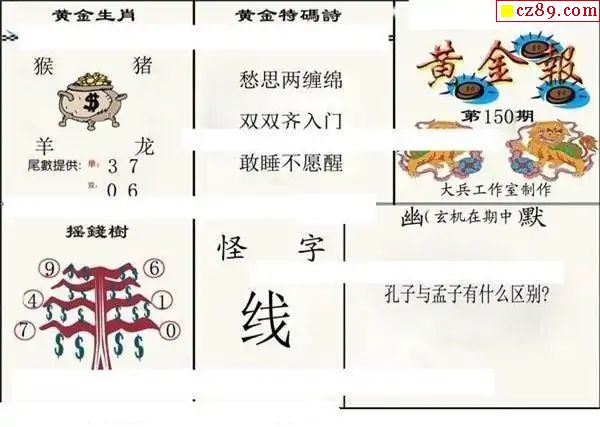 cz89.com
黄金生肖
猴 猪
$
羊 龙
尾數提供: 单: 3 7
双: 0 6
黄金特碼詩
愁思两缠绵
双双齐入门
敢睡不愿醒
黄金報
第150期
大兵工作室制作
摇錢樹
9 6
4 1
7 0
怪 字
线
幽(玄机在期中)默
孔子与孟子有什么区别?